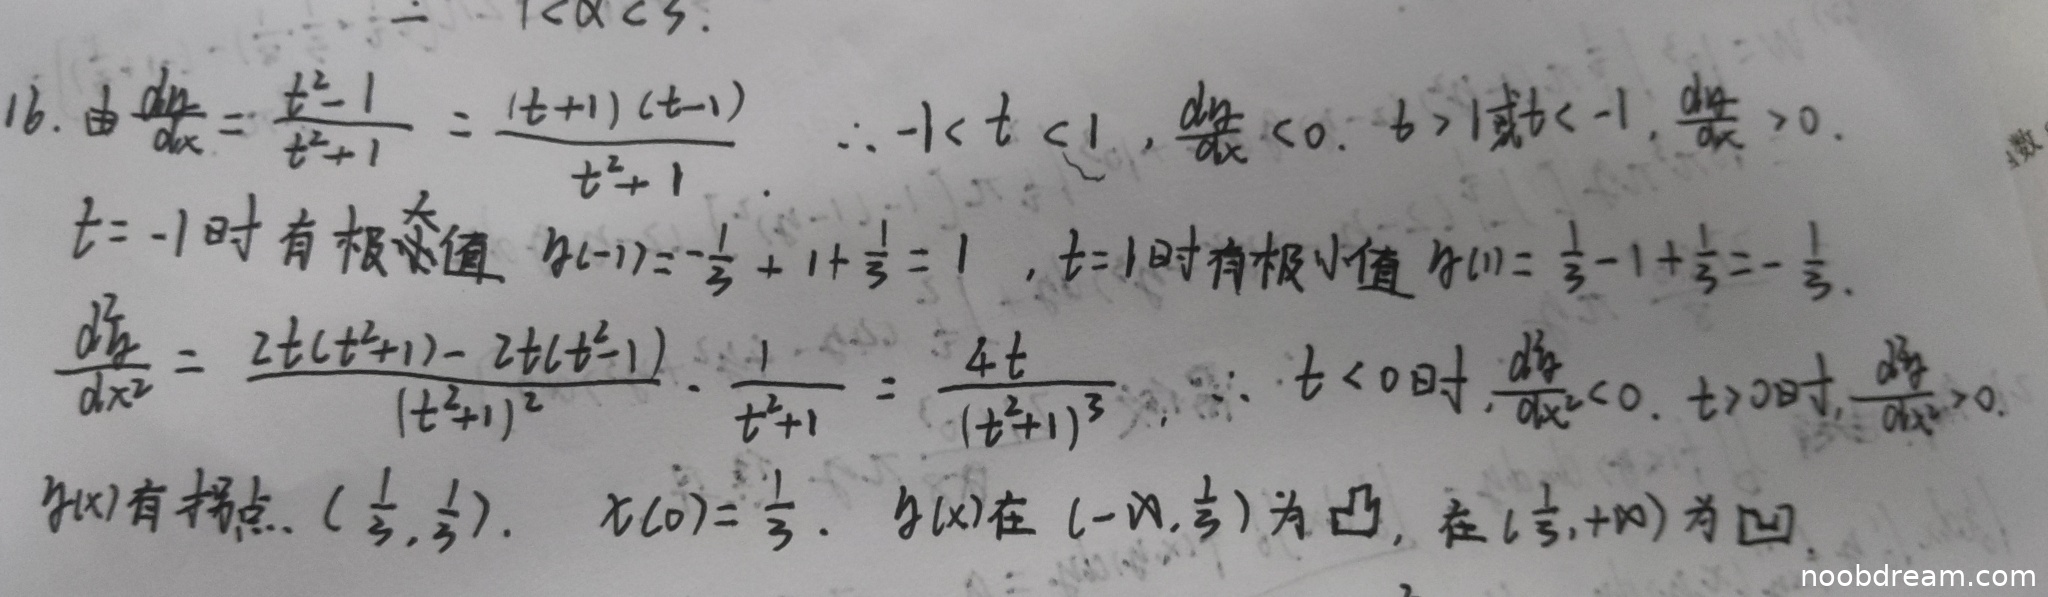 1<α<3.
16. 由 dy/dx = (t²-1)/(t²+1) = (t+1)(t-1)/(t²+1). ∴ -1<t<1, dy/dx <0. t>1或t<-1, dy/dx >0.
t=-1时有极大值 y(-1)=-1/3+1+1/3=1, t=1时有极小值 y(1)=1/3-1+1/3=-1/3.
d²y/dx² = (2t(t²+1)-2t(t²-1))/(t²+1)² · 1/(t²+1) = 4t/(t²+1)³, ∴ t<0时, d²y/dx²<0. t>0时, d²y/dx²>0.
y(x)有拐点. (1/3, 1/3). x(0)=1/3. y(x)在(-∞, 1/3)为凸, 在(1/3, +∞)为凹.
数
noobdream.com